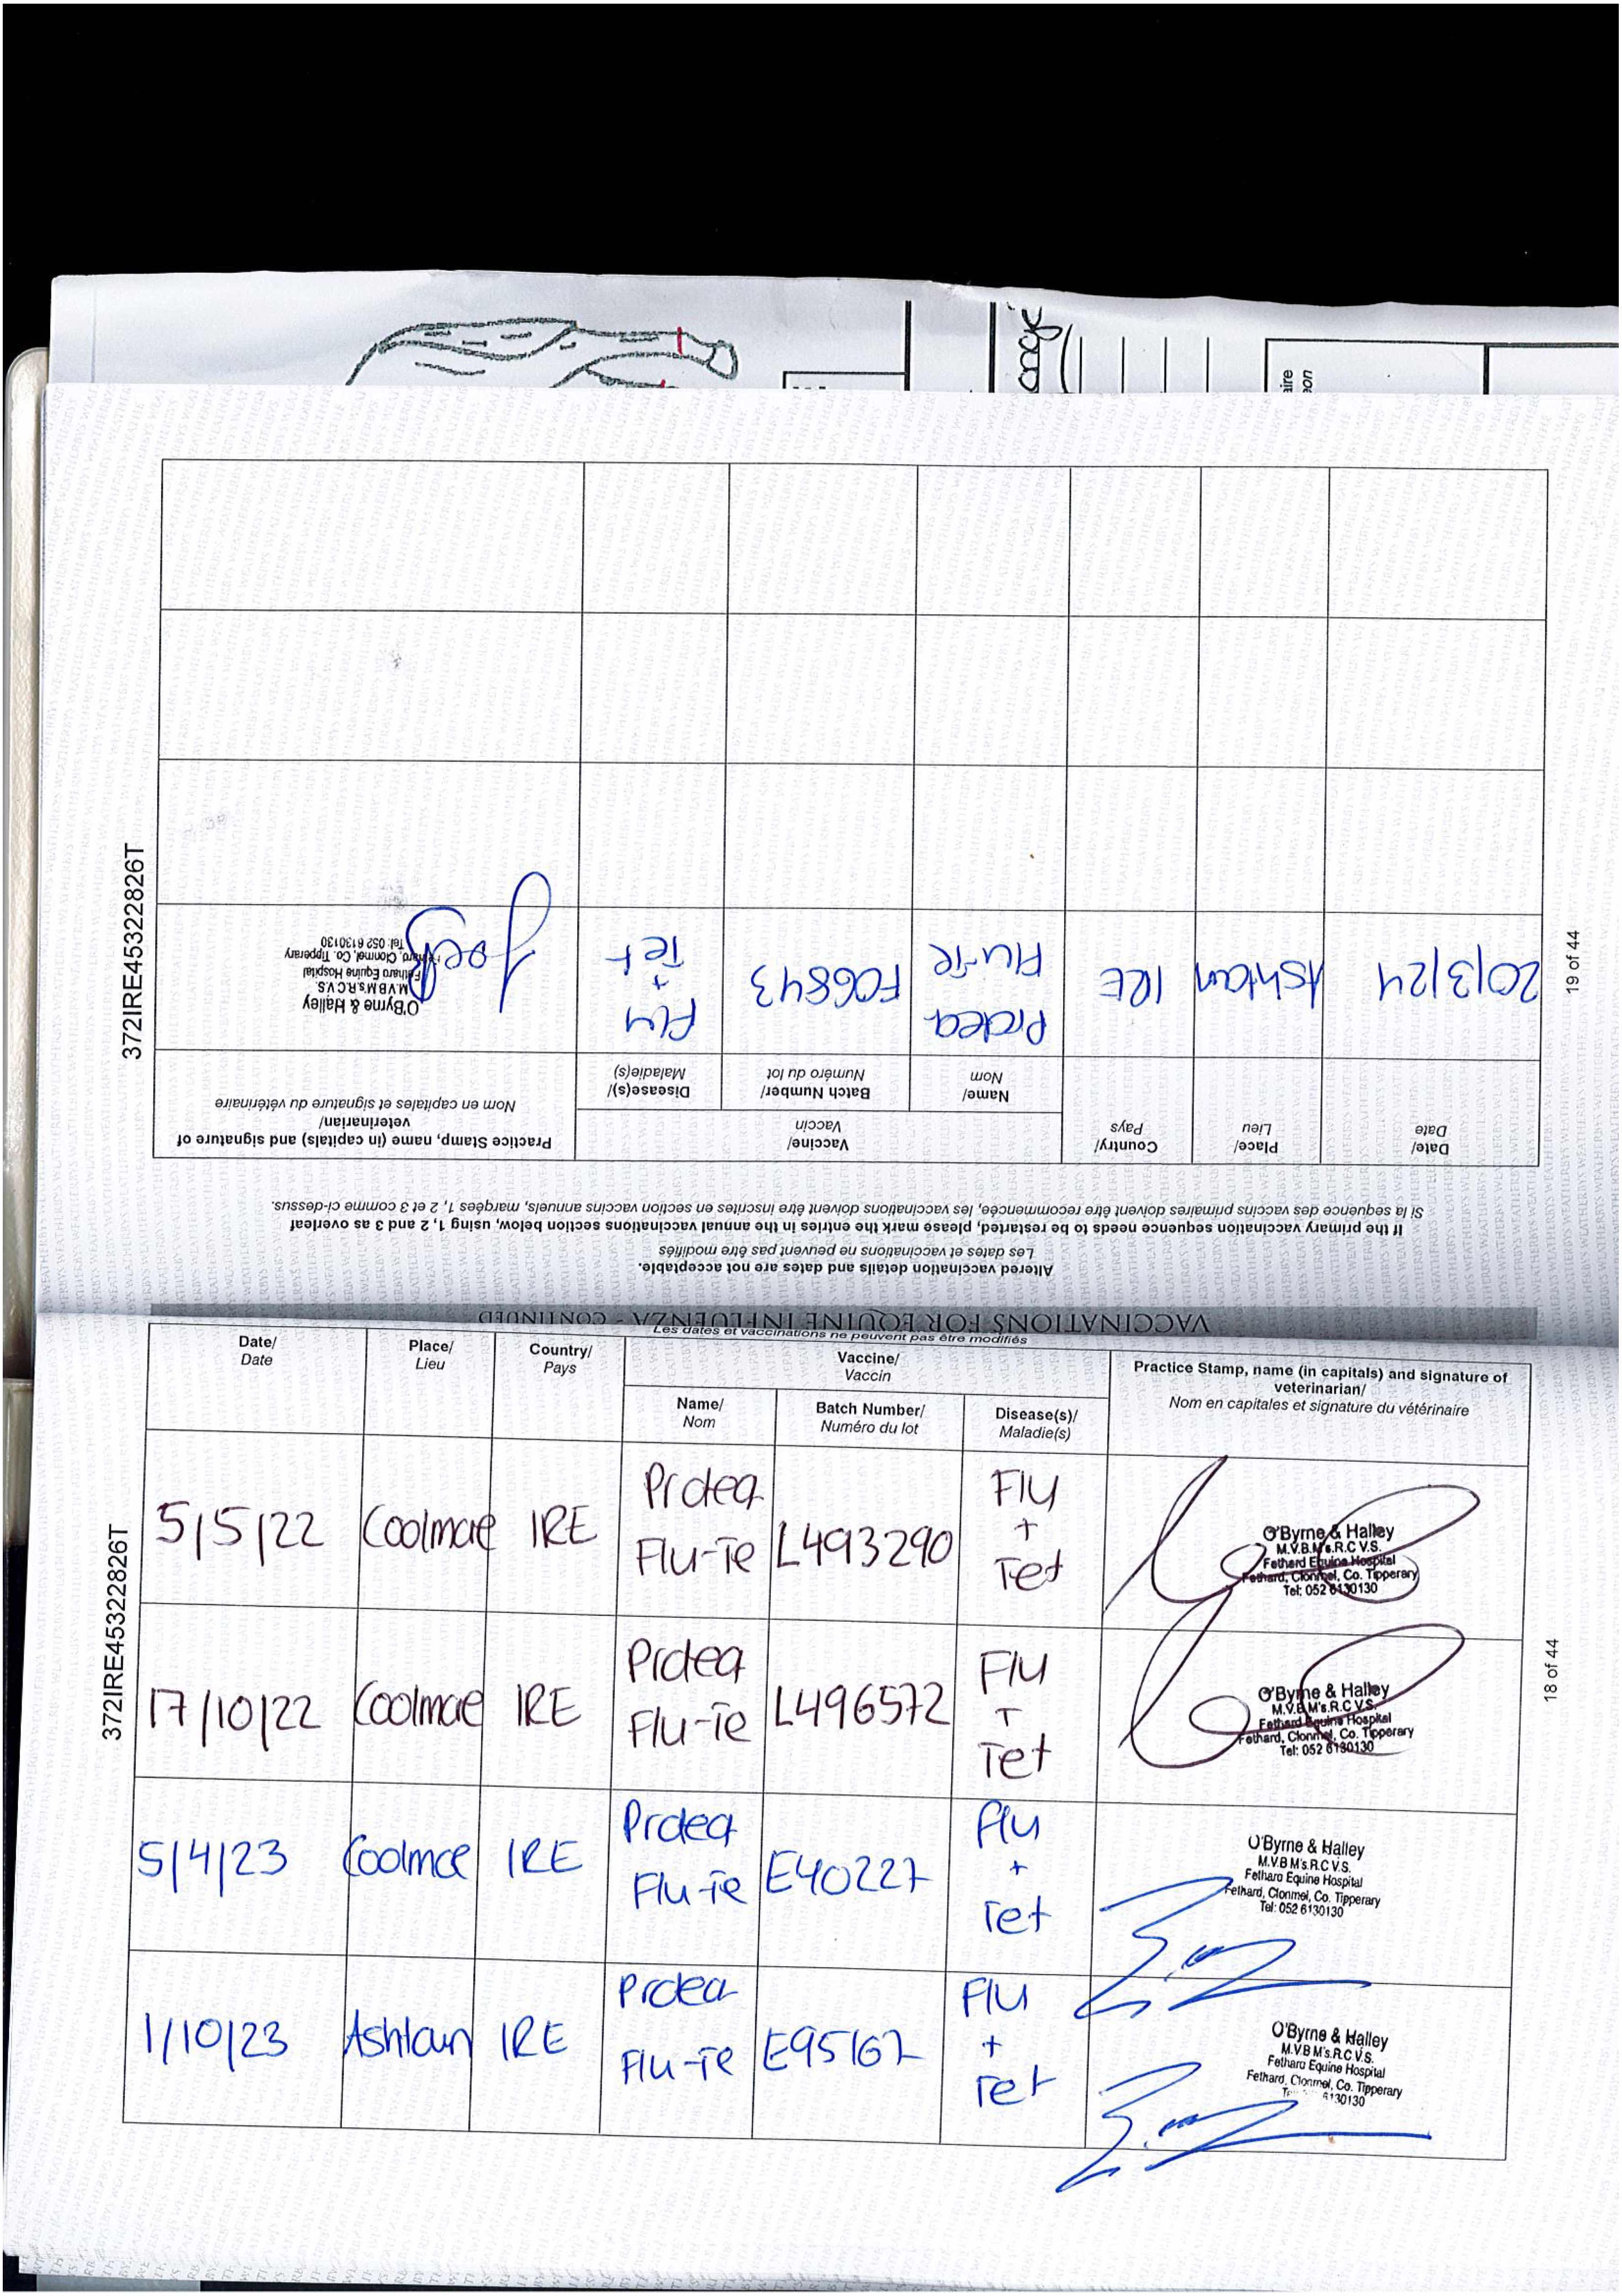 onge
aire
on
19 of 44
372IRE45322826T
VACCINATIONS FOR EQUINE INFLUENZA - CONTINUED
Altered vaccination details and dates are not acceptable.
Les dates et vaccinations ne peuvent pas être modifiés
If the primary vaccination sequence needs to be restarted, please mark the entries in the annual vaccinations section below, using 1, 2 and 3 as overleaf
Si la séquence des vaccins primaires doivent être recommencée, les vaccinations doivent être inscrites en section vaccins annuels, marqées 1, 2 et 3 comme ci-dessus.
Date/
Date
Place/
Lieu
Country/
Pays
Vaccine/
Vaccin
Name/
Nom
Batch Number/
Numéro du lot
Disease(s)/
Maladie(s)
Practice Stamp, name (in capitals) and signature of
veterinarian/
Nom en capitales et signature du vétérinaire
20/3/24
Ashtown
IRE
Proteq
Flu-Te
F06843
Flu
+
Tet
O'Byrne & Halley
M.V.B M's.R.C.V.S.
Fethard Equine Hospital
Fethard, Clonmel, Co. Tipperary
Tel: 052 6130130
Les dates et vaccinations ne peuvent pas être modifiés
Date/
Date
Place/
Lieu
Country/
Pays
Vaccine/
Vaccin
Name/
Nom
Batch Number/
Numéro du lot
Disease(s)/
Maladie(s)
Practice Stamp, name (in capitals) and signature of
veterinarian/
Nom en capitales et signature du vétérinaire
5/5/22
Coolmore
IRE
Proteq
Flu-Te
L493290
Flu
+
Tet
O'Byrne & Halley
M.V.B.M's.R.C V.S.
Fethard Equine Hospital
Fethard, Clonmel, Co. Tipperary
Tel: 052 6130130
17/10/22
Coolmore
IRE
Proteq
Flu-Te
L496572
Flu
+
Tet
O'Byrne & Halley
M.V.B M's.R.C V.S.
Fethard Equine Hospital
Fethard, Clonmel, Co. Tipperary
Tel: 052 6130130
5/4/23
Coolmore
IRE
Proteq
Flu-Te
E40227
Flu
+
Tet
O'Byrne & Halley
M.V.B M's.R.C V.S.
Fethard Equine Hospital
Fethard, Clonmel, Co. Tipperary
Tel: 052 6130130
1/10/23
Ashtown
IRE
Proteq
Flu-Te
E95167
Flu
+
Tet
O'Byrne & Halley
M.V.B M's.R.C.V.S.
Fethard Equine Hospital
Fethard, Clonmel, Co. Tipperary
6130130
372IRE45322826T
18 of 44